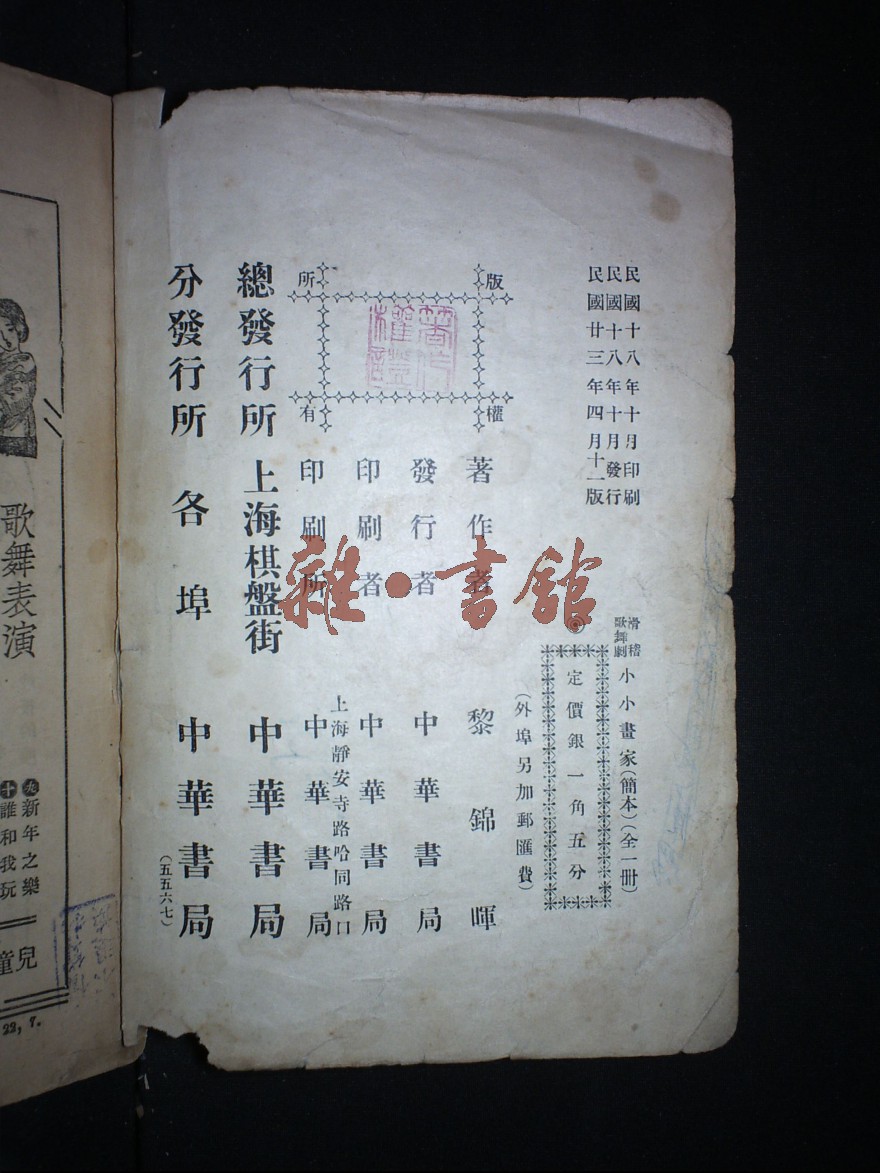 民國十八年十月印刷
民國十八年十月發行
民國廿三年四月十一版
滑稽
歌舞劇
小小畫家(簡本)(全一冊)
◉定價銀一角五分
(外埠另加郵匯費)
版權所有
著作者 黎錦暉
發行者 中華書局
印刷者 中華書局
上海靜安寺路哈同路口
印刷所 中華書局
總發行所 上海棋盤街 中華書局
分發行所 各埠 中華書局
(五五六七)
雜·書館
歌舞表演
九 新年之樂
十 誰和我玩
兒童
22, 7.